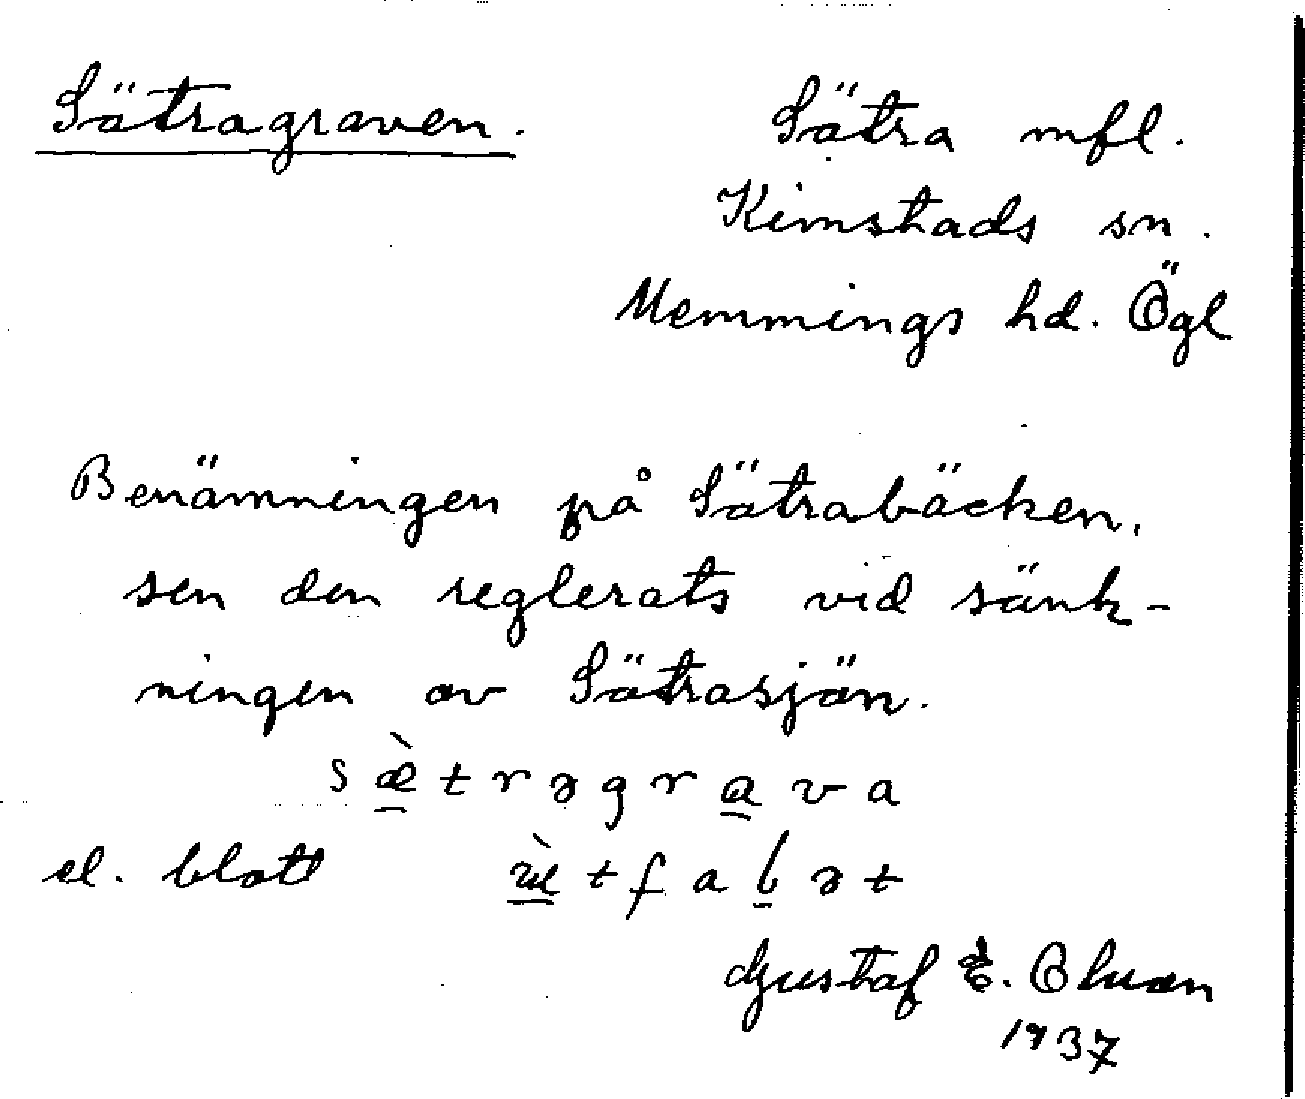 Sätragraven. Sätra mfl.
Kimstads sn.
Memmings hd. Ögl
Benämningen på Sätrabäcken,
sen den reglerats vid sänk-
ningen av Sätrasjön.
sæ̀trəgrava
el. blott
Gustaf E.
1937